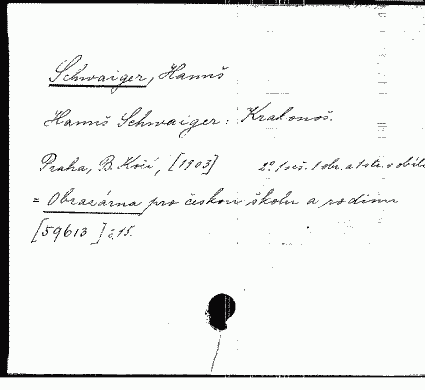 Schwaiger, Hanuš
Hanuš Schwaiger: Krakonoš.
Praha, B. Kočí, [1903] 2° 1 seš. 1 obr. a 1 str. v obálc
= Obrazárna pro českou školu a rodinu
[59613] č. 15.